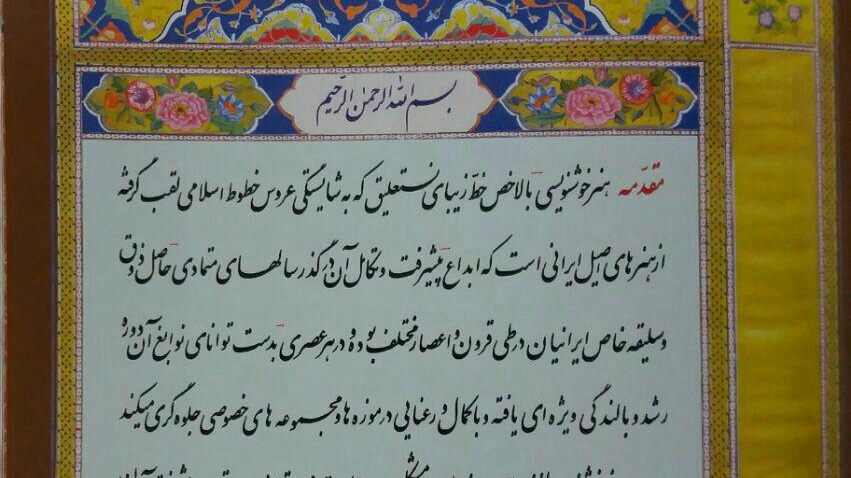 بسم الله الرحمن الرحیم
مقدّمه هنر خوشنویسی بالاخص خطّ زیبای نستعلیق که به شایستگی عروس خطوط اسلامی لقب گرفته
از هنرهای اصیل ایرانی است که ابداع پیشرفت و تکامل آن در گذر سالهای متمادی حاصل ذوق
و سلیقه خاص ایرانیان در طی قرون و اعصار مختلف بوده و در هر عصری بدست توانای نوابغ آن دوره
رشد و بالندگی ویژه ای یافته و با کمال و رعنایی در موزه ها و مجموعه های خصوصی جلوه گری میکند